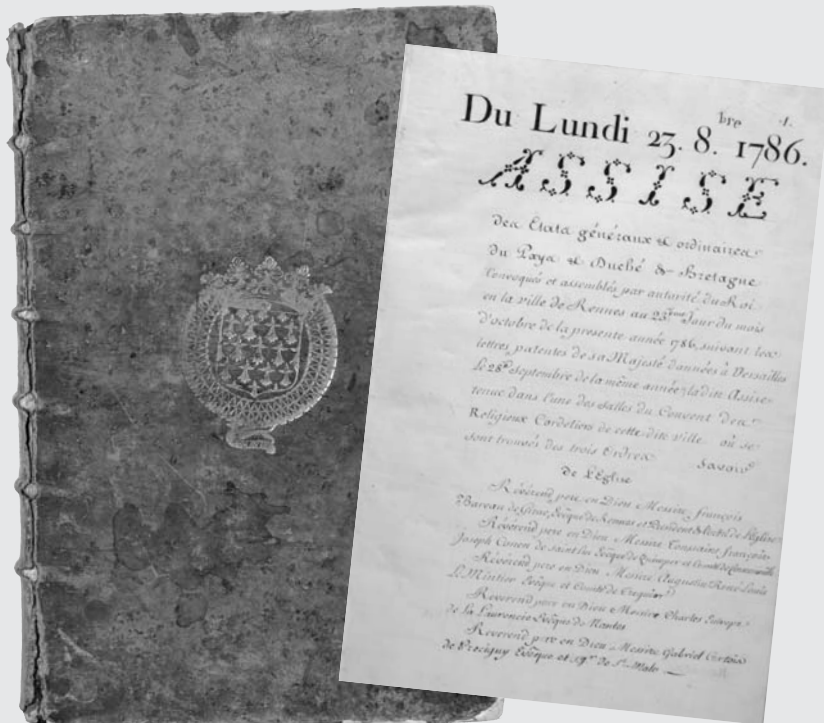 1.
Du Lundi 23. 8.bre 1786.
ASSISE
des Etats généraux & ordinaires
du Pays & Duché de Bretagne
Convoqués et assemblés par autorité du Roi
en la ville de Rennes au 23eme Jour du mois
d'octobre de la presente année 1786, suivant les
lettres patentes de sa Majesté données à Versailles
Le 28e septembre de la même année; ladite Assise
tenue dans l'une des salles du Couvent des
Religieux Cordeliers de cette dite ville où se
sont trouvés des trois Ordres Savoir
de L'Eglise
Révérend pere en Dieu Messire françois
Bareau de Girac, Evêque de Rennes et Président de l'ordre de l'Eglise
Révérend pere en Dieu Messire Toussaint françois
Joseph Conen de Saint Luc Evêque de Quimper et Comte de Cornouaille
Révérend pere en Dieu Messire Augustin René Louis
Le Mintier Evêque et Comte de Treguier
Reverend pere en Dieu Messire Charles Eutrope
de la Laurencie Evêque de Nantes
Reverend pere en Dieu Messire Gabriel Cortois
de Pressigny Evêque et sgr. de St. Malo